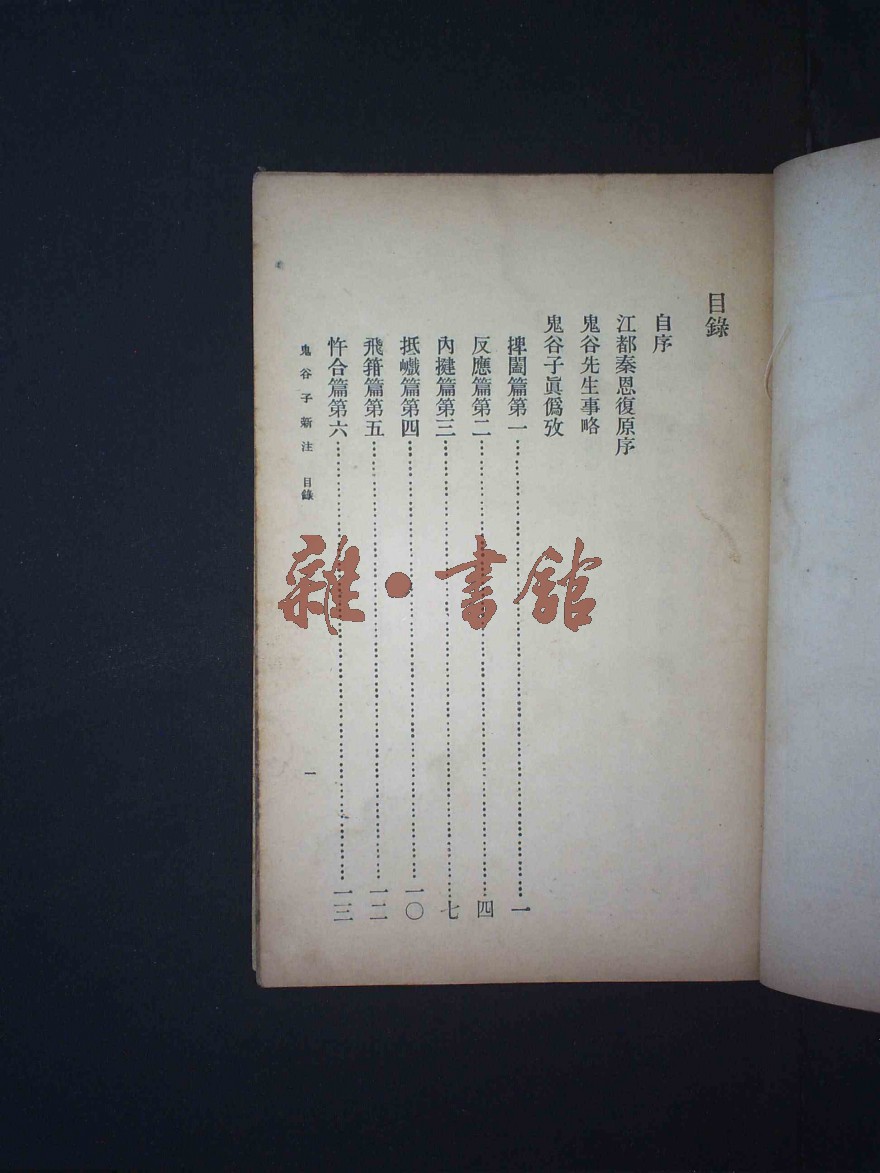 目錄
自序
江都秦恩復原序
鬼谷先生事略
鬼谷子眞僞攷
捭闔篇第一 一
反應篇第二 四
內揵篇第三 七
抵巇篇第四 一〇
飛箝篇第五 一二
忤合篇第六 一三
鬼谷子新注 目錄 一
雜·書館